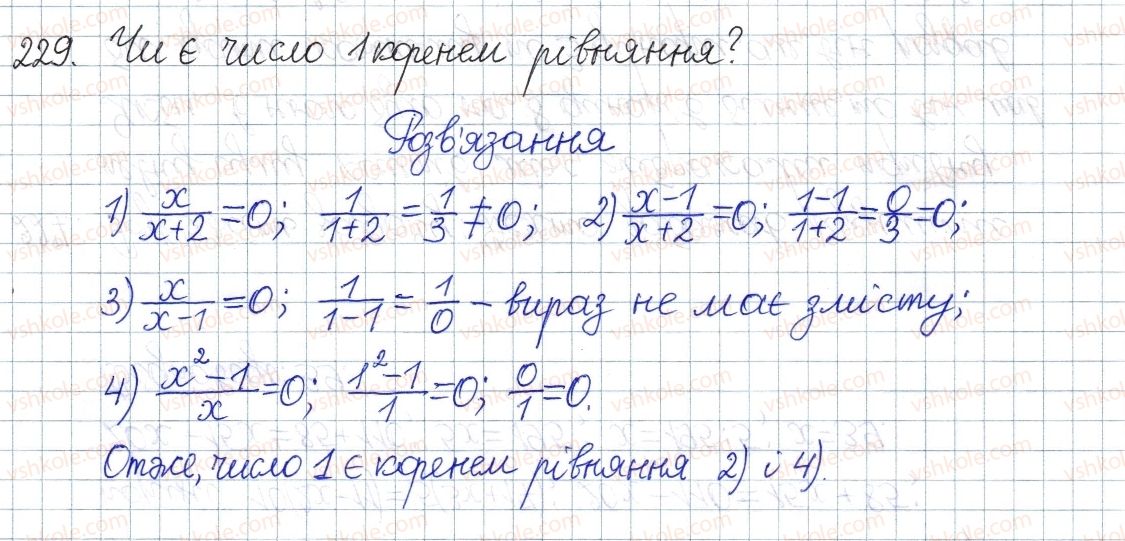 229. Чи є число 1 коренем рівняння?
Розв'язання
1) x/(x+2) = 0; 1/(1+2) = 1/3 ≠ 0; 2) (x-1)/(x+2) = 0; (1-1)/(1+2) = 0/3 = 0;
3) x/(x-1) = 0; 1/(1-1) = 1/0 - вираз не має змісту;
4) (x²-1)/x = 0; (1²-1)/1 = 0; 0/1 = 0.
Отже, число 1 є коренем рівняння 2) і 4).